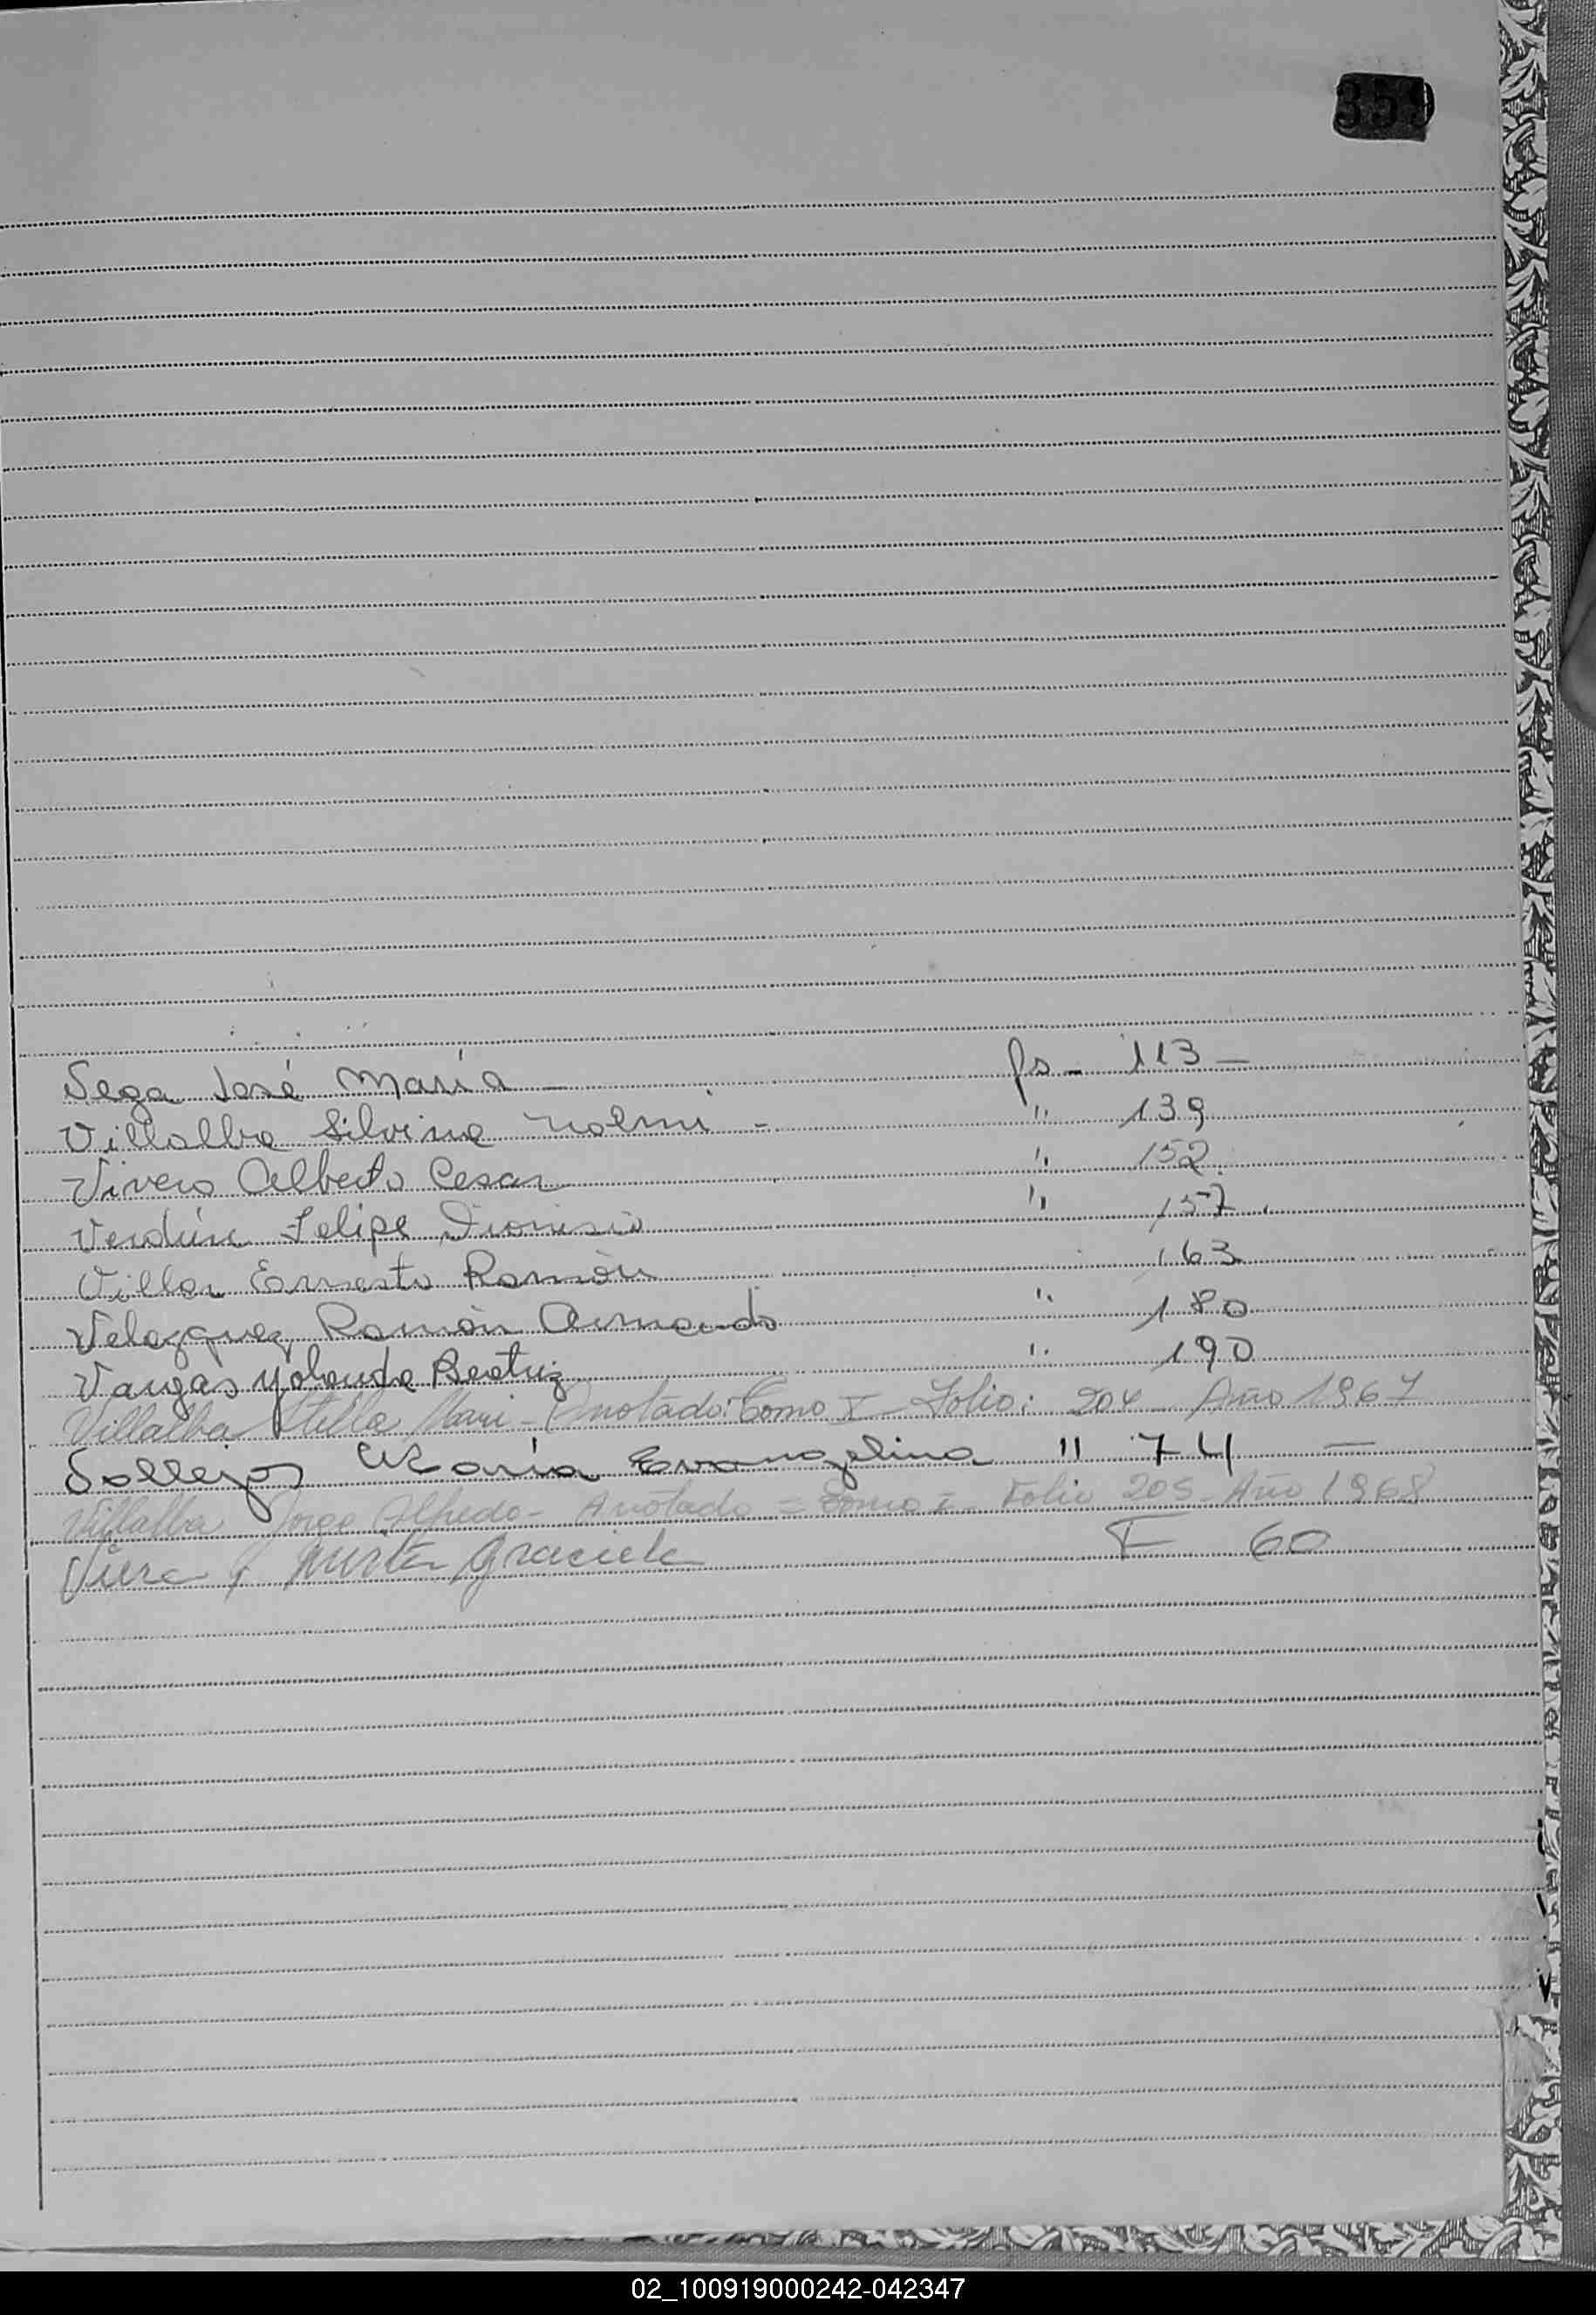 359
Vega José María — fs - 113 —
Villalba Silvina Noemi - " 139
Vivero Alberto Cesar " 152
Verdún Felipe Dionisio " 157
Villar Ernesto Ramón 163
Velazquez Ramón Armando " 180
Vargas Yolanda Beatriz " 190
Villalba Stella Mari - Anotado: Tomo I - Folio: 204 - Año 1967
Vallejos María Evangelina " 74 —
Villalba Jorge Alfredo - Anotado = Tomo I - Folio 205 - Año 1968
Mirta Graciela F 60
02_100919000242-042347